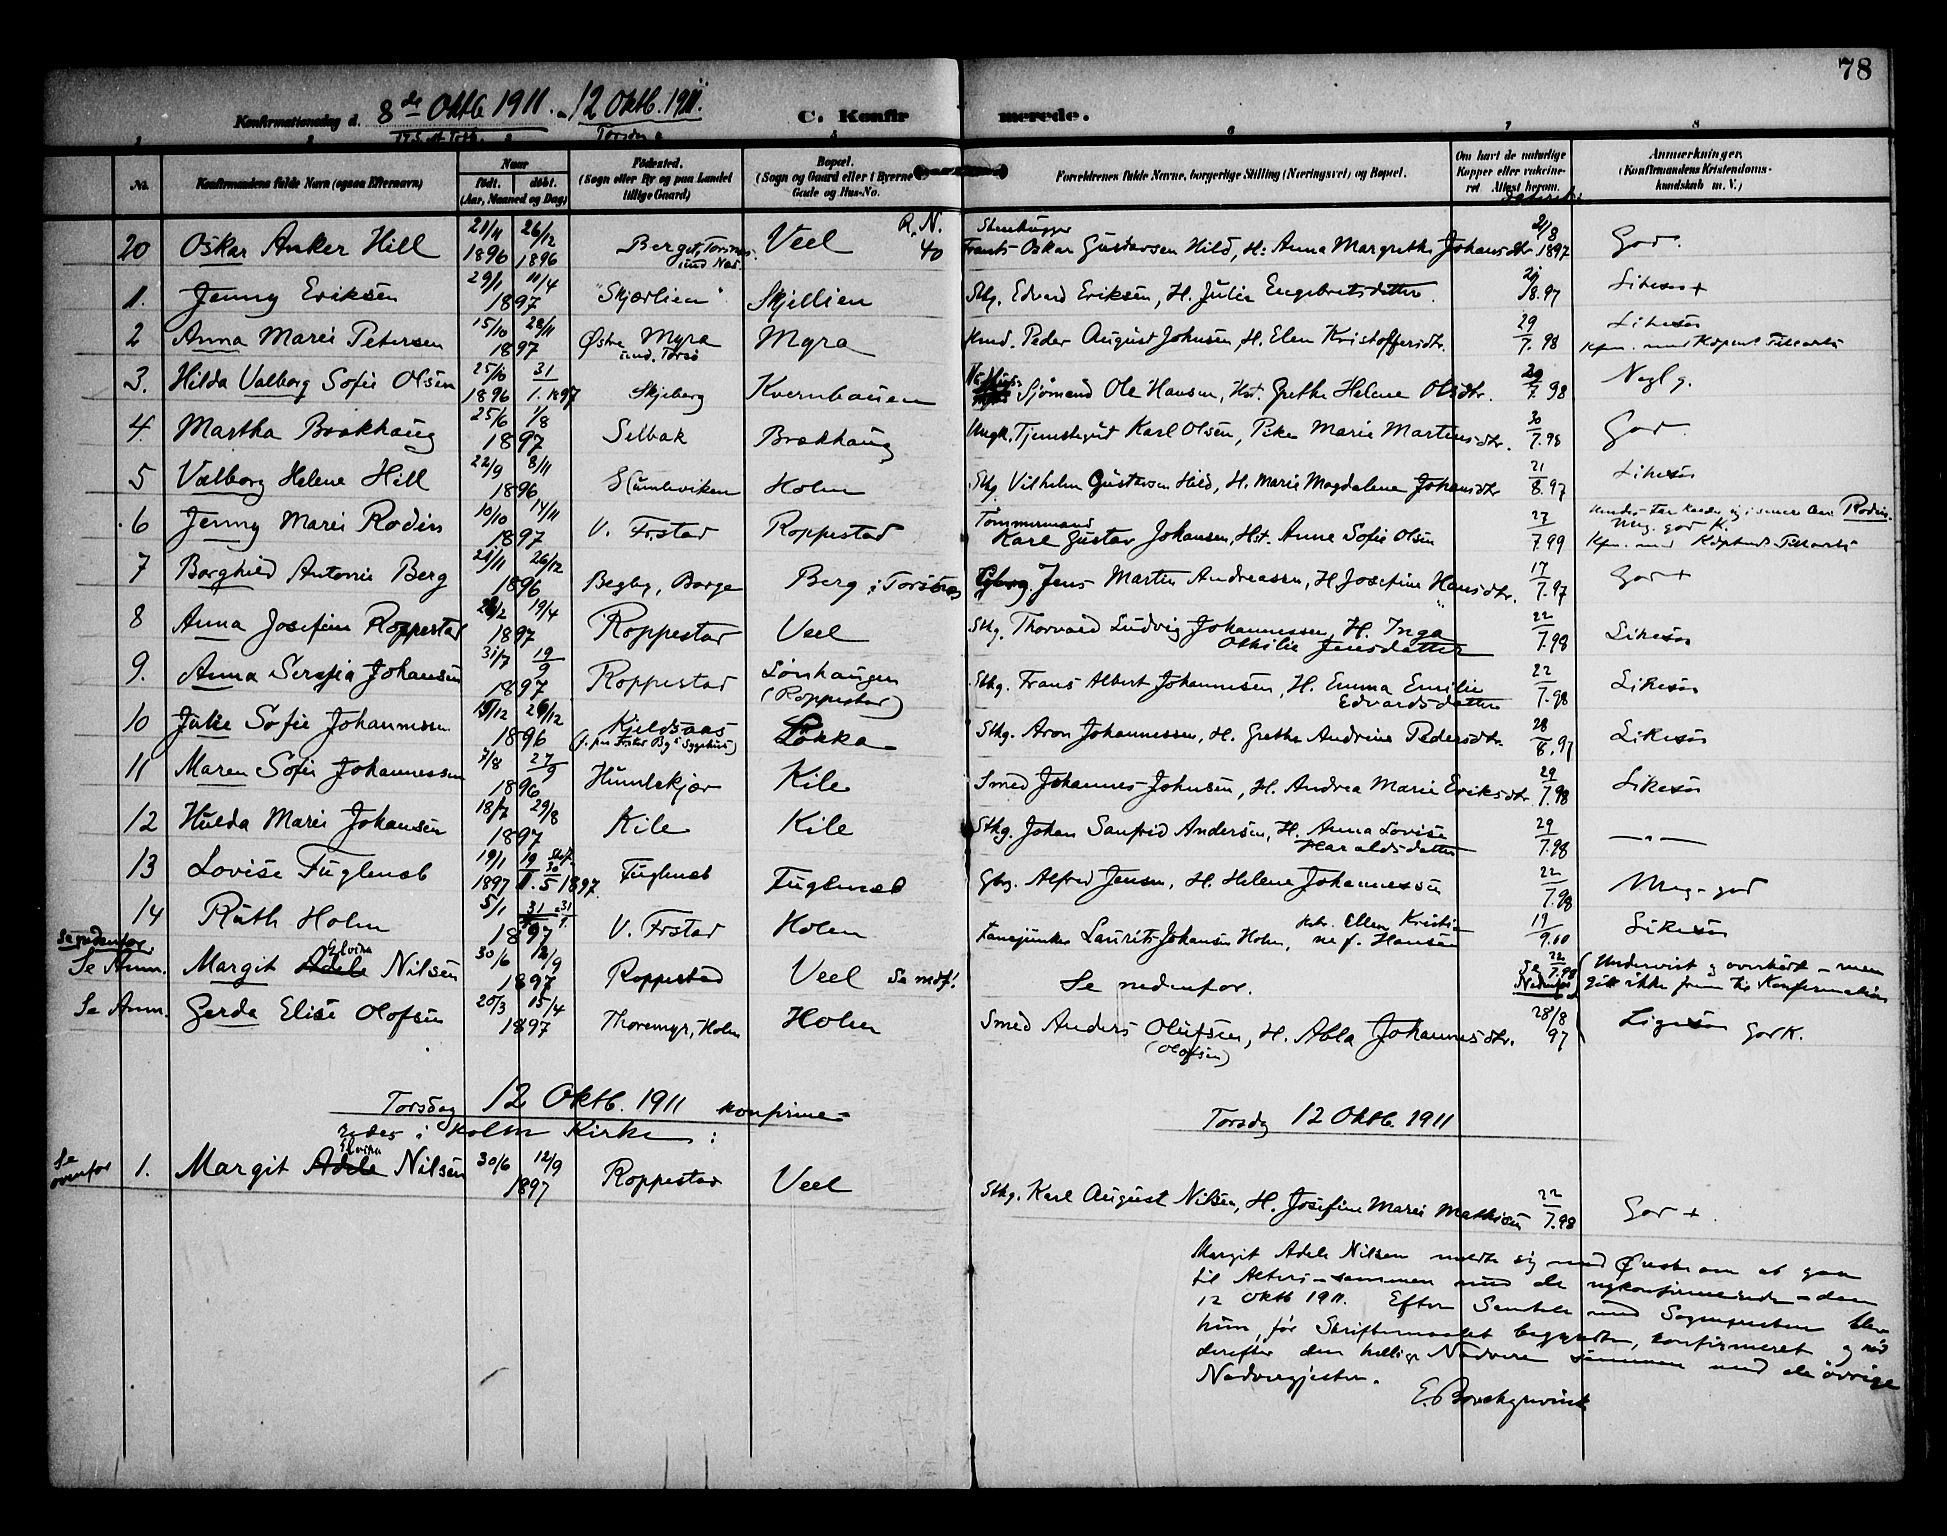 78
Konfirmationsdag d. 8de Oktb 1911. - 12 Oktb. 1911. C. Konfirmerede.
Torsdag
No. Konfirmandens fulde Navn (ogsaa Efternavn) Naar født. døbt. (Aar, Maaned og Dag) Fødested. (Sogn eller By og paa Landet tillige Gaard) Bopæl. (Sogn og Gaard eller i Byerne Gade og Hus-No. Forældrenes fulde Navne, borgerlige Stilling (Næringsvei) og Bopæl. Om havt de naturlige Kopper eller vaccineret. Attest herom. Anmærkninger. (Konfirmandens Kristendomskundskab m. V.)
20 Oskar Anker Hill 21/11 1896 26/12 1896 Berget, Torsnes Veel R.N. 40 Stenhugger Frants Oskar Gustavsen Hild, H: Anna Margrethe Johansdtr. 2/8 1897 God.
1. Jenny Eriksen 29/1 11/4 1897 "Skjærlien" Skjellien Sthg. Edvard Eriksen, H. Julie Engebretsdatter. 8.97 Likesaa +
2 Anna Marie Petersen 15/10 28/11 1897 Østre Myra Myra Peder August Johnsen, H. Elen Kristoffersdtr. 29/7.98 Likesaa
3. Hilda Valborg Sofie Olsen 25/10 1896 31/1.1897 Skjeberg Kvernhauen Sjømand Ole Hansen, Hst. Grethe Helene Olsdtr. 29/7 98 Nogl g.
4. Martha Brækhaug 25/6 1/8 1897 Selbak Brækhaug Ungk. Tjenstegut Karl Olsen, Pike Marie Martinsdtr. 30/7.98 God.
5 Valborg Helene Hill 22/9 8/11 1896 Humleviken Holm Sthg. Vilhelm Gustavsen Hild, H. Marie Magdalene Johansdtr 21/8.97 Likesaa
6 Jenny Marie Rodin 10/10 14/11 1897 V. Frstad Roppestad Tømmermand Karl Gustav Johansen, Hst. Anne Sofie Olsen 27/7.99 Rodin. Mg. god K.
7 Borghild Antonie Berg 21/11 26/12 1896 Begby, Borge Berg i Torsnes Jens Martin Andreassen, H Josefine Hansdtr. 17/7.97 God +
8 Anna Josefine Roppestad 19/4 1897 Roppestad Veel Sthg. Thorvald Ludvig Johannessen, H. Inga Othilie Jensdatter 22/7.98 Likesaa
9. Anna Serafia Johansen 31/7 19/9 1897 Roppestad Lønhaugen (Roppestad) Sthg. Frans Albert Johannesen, H. Emma Emilie Edvardsdatter 22/7.98 Likesaa
10 Julie Sofie Johannesen 26/12 1896 Kjeldsaas Løkka Sthg. Aron Johannessen, H. Grethe Andrine Pedersdtr. 28/8.97 Likesaa
11 Maren Sofie Johannessen 7/8 27/9 1896 Humlekjær Kile Smed Johannes Johnsen, H. Andrea Marie Eriksdtr. 29/7.98 Likesaa
12 Hulda Marie Johansen 18/7 29/8 1897 Kile Kile Sthg. Johan Sanfrid Andersen, H. Anna Lovise Haraldsdatter 29/7.98 — " —
13 Lovise Fuglenæb 19/1 1897 30/5 1897. Fuglenæb Fuglenæb Gbg. Alfred Jensen, H. Helene Johannessen 22/7.98 Meg. god
14 Ruth Holm 5/1 31/1 1897 V. Frstad Holm Laurits Johansen Holm, Ellen Kristine f. Hansen 19/9.10 Likesaa
Se nedenfor.
Se Anm. Margit Adele Elvira Nilsen 30/6 12/9 1897 Roppestad Veel Se modf! Se nedenfor. 22/7.98 Se Nedenfor Undervist og overhørt - men gik ikke frem til Konfirmation
Se Anm. Gerda Elise Olofsen 20/3 15/4 1897 Thoremyr, Holm Holm Smed Anders Olufsen (Olofsen), H. Abla Johannesdtr. 28/8 97 Ligesaa God K.
Torsdag 12 Oktb. 1911 konfirmeredes i Holm Kirke:
Torsdag 12 Oktb. 1911
Se ovenfor 1. Margit Adele Elvira Nilsen 30/6 12/9 1897 Roppestad Veel Sthg. Karl August Nilsen, H. Josefine Marie Mathisen 22/7.98 God +.
Margit Adele Nilsen meldte sig med Ønske om at gaa
til Alters sammen med de nykonfirmerede - den
12 Oktb 1911. Efter Samtale med Sognepresten blev
hun, før Skriftemaalet begyndte, konfirmeret og nød
derefter den hellige Nadvere sammen med de øvrige
Nadvergjester.
E. Borchgrevink